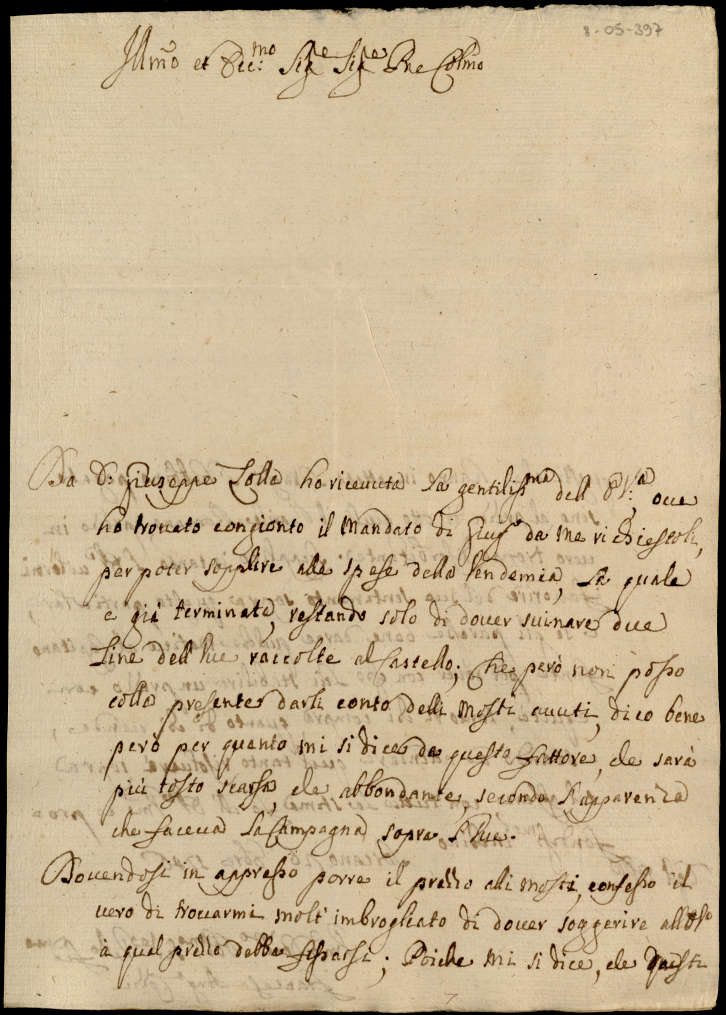 8-05-397
Illmo et Ecc:mo Sigre Sigre Pne Colmo
Da Dn Giuseppe Zolla ho ricevuta la gentilissma dell' E V:a, ove
ho trovato congionto il Mandato di Giug da me richiestoli,
per poter supplire alle spese della Vendemia, la quale
e già terminata, restando solo di dover suinare due
Tine dell'Vue raccolte al Castello; Che però non posso
colla presente darli conto delli Mosti auuti, dico bene
però per quanto mi si dice da questo Fattore, che sarà
più tosto scarsa, che abbondante, secondo l'apparenza
che faceua la Campagna sopra l'Vue.
Douendosi in appresso porre il prezzo alli Mosti, confesso il
uero di trouarmi molt'imbrogliato di douer soggerire all'
à qual prezzo debba fissarsi; Poiche mi si dice, che questi